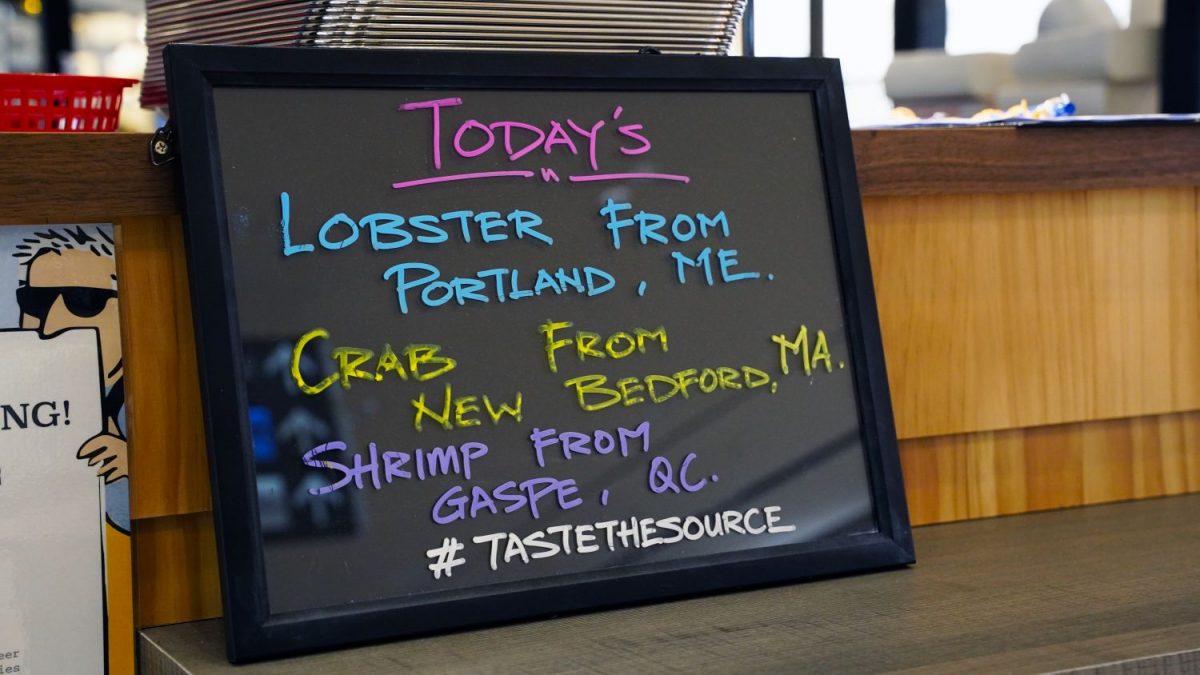 TODAY'S
LOBSTER FROM
PORTLAND, ME.
CRAB FROM
NEW BEDFORD, MA.
SHRIMP FROM
GASPE, QC.
#TASTETHESOURCE
NG!
eer
ies